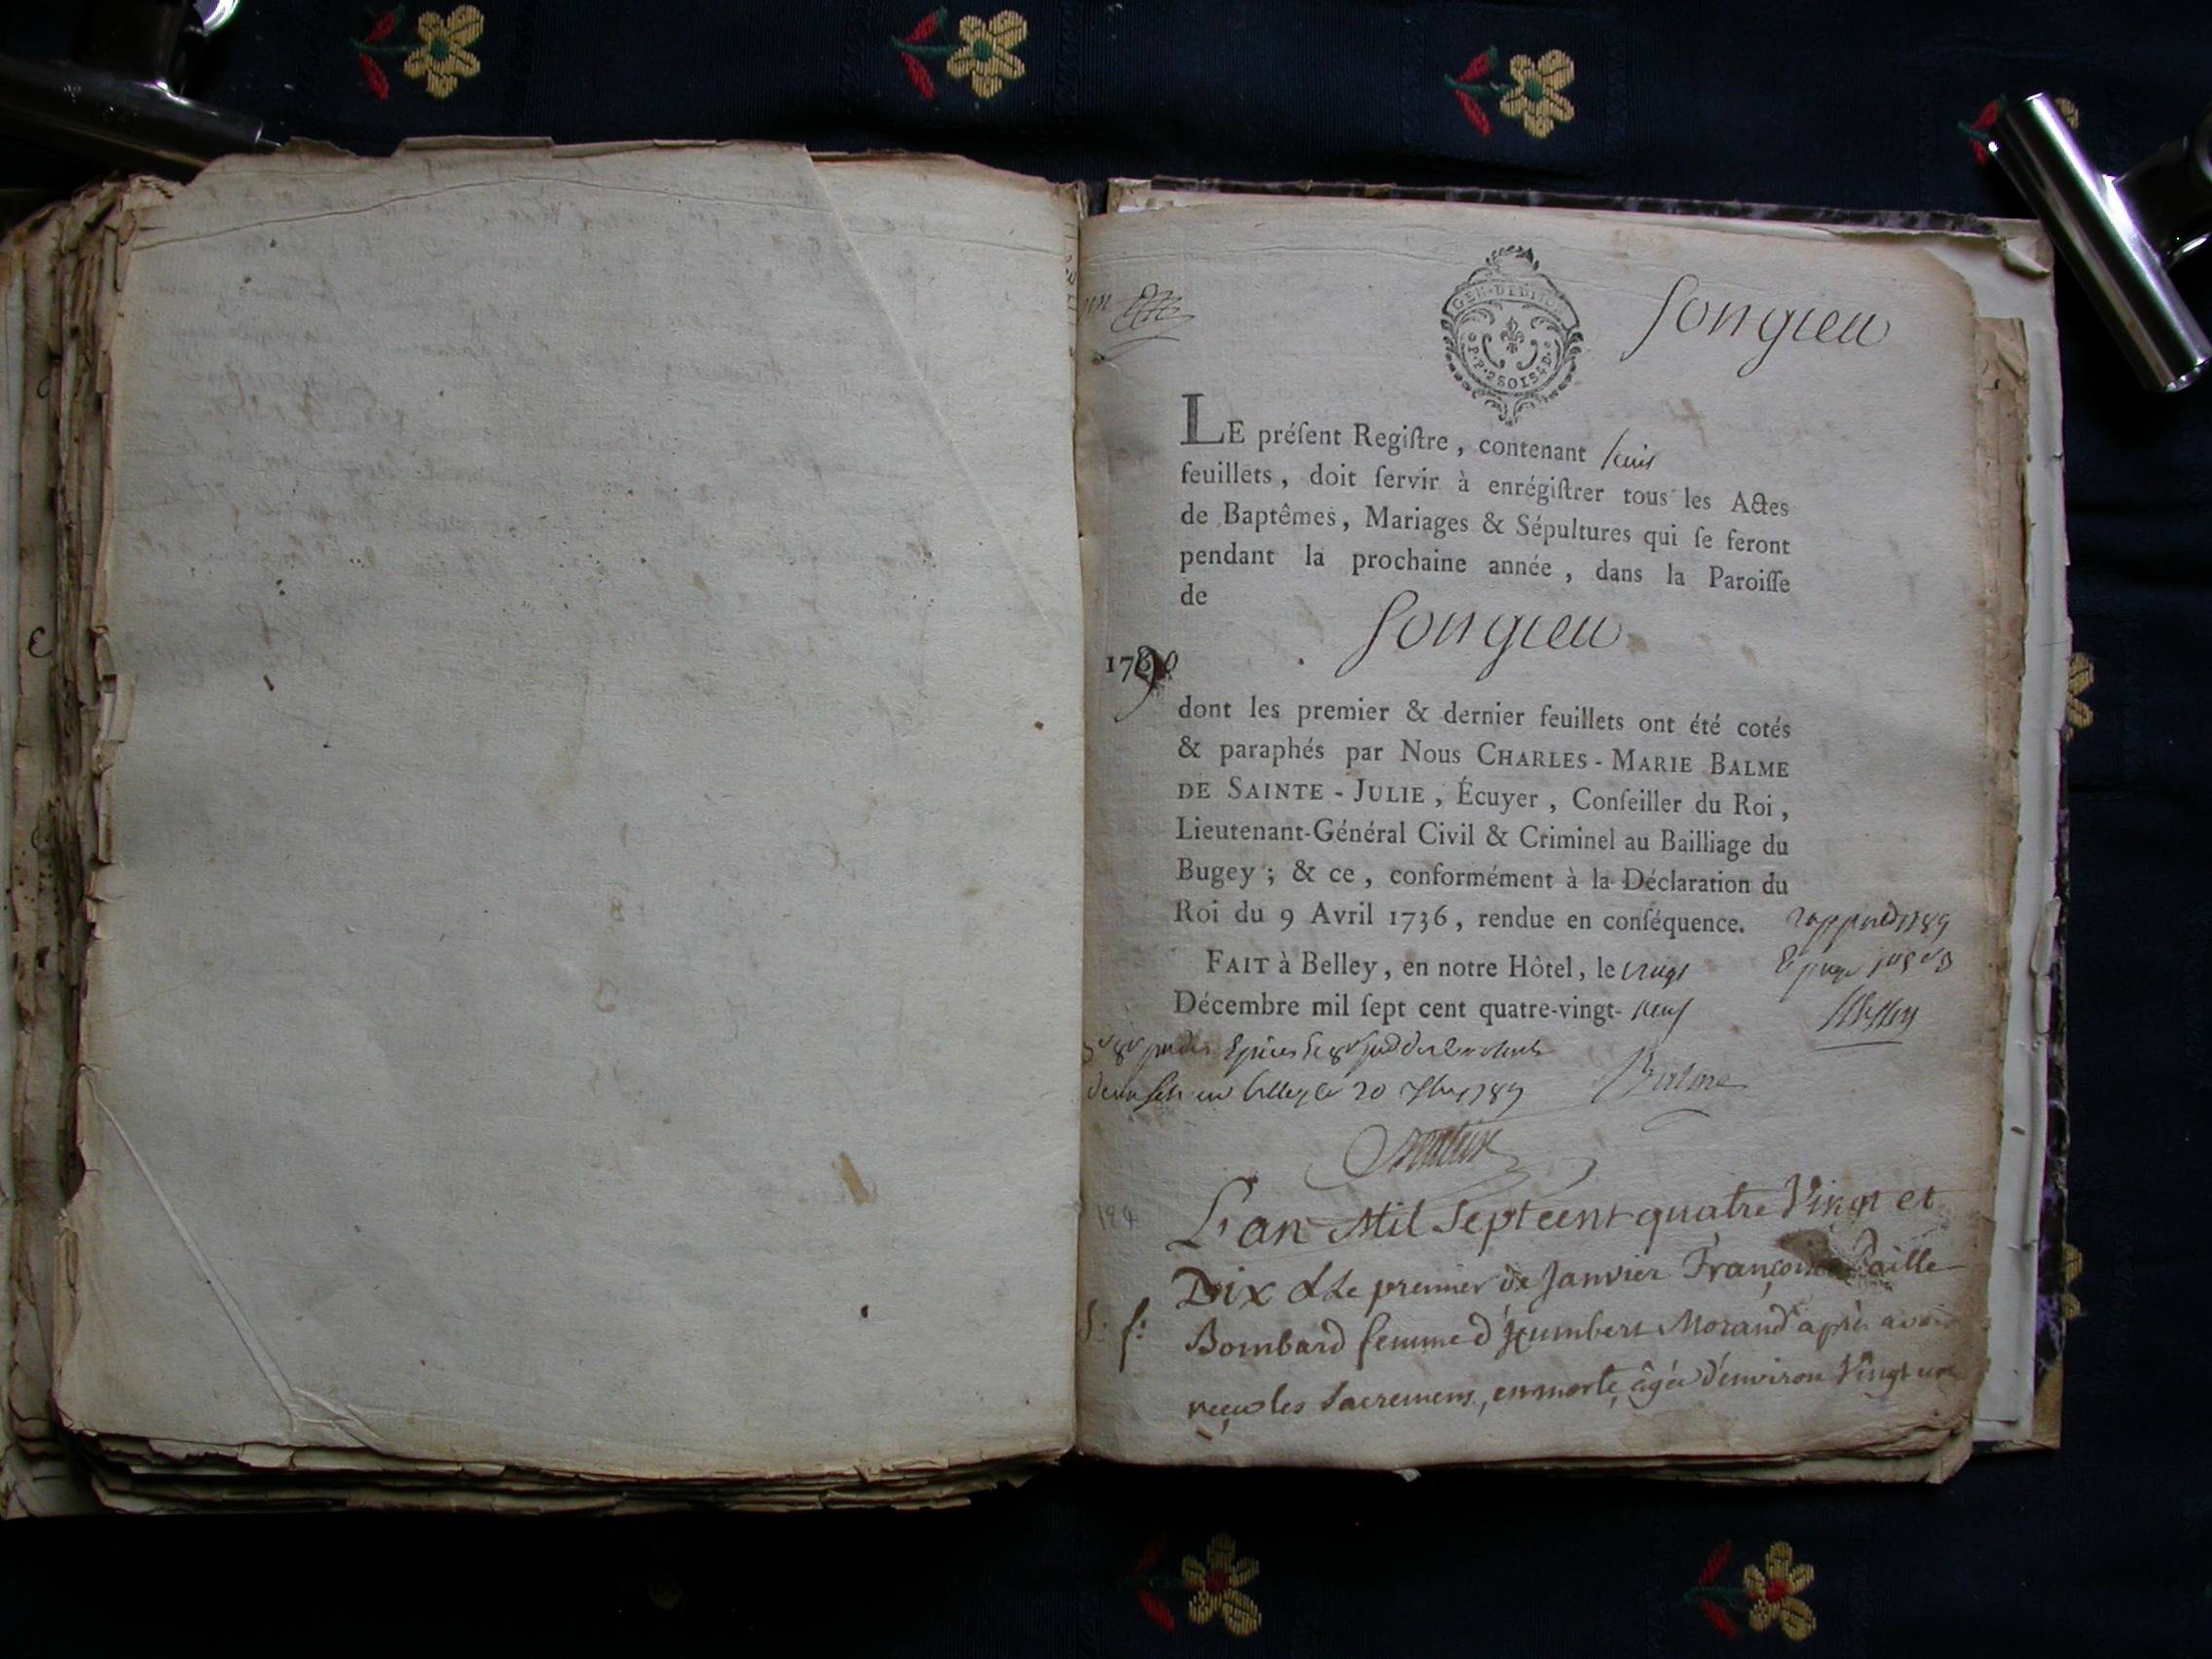 Songieu
GEN. DE DIJON
LE préſent Regiſtre, contenant
feuillets, doit ſervir à enrégiſtrer tous les Actes
de Baptêmes, Mariages & Sépultures qui ſe feront
pendant la prochaine année, dans la Paroiſſe
de Songieu
1790
dont les premier & dernier feuillets ont été cotés
& paraphés par Nous CHARLES-MARIE BALME
DE SAINTE-JULIE, Écuyer, Conſeiller du Roi,
Lieutenant-Général Civil & Criminel au Bailliage du
Bugey; & ce, conformément à la Déclaration du
Roi du 9 Avril 1736, rendue en conſéquence.
FAIT à Belley, en notre Hôtel, le vingt
Décembre mil ſept cent quatre-vingt-neuf
Balme
L'an Mil Septcent quatre Vingt et
Dix & le premier de Janvier Françoise Paille
Bombard femme d'humbert Morand après avoir
reçu les Sacremens, est morte, âgée d'environ Vingt un